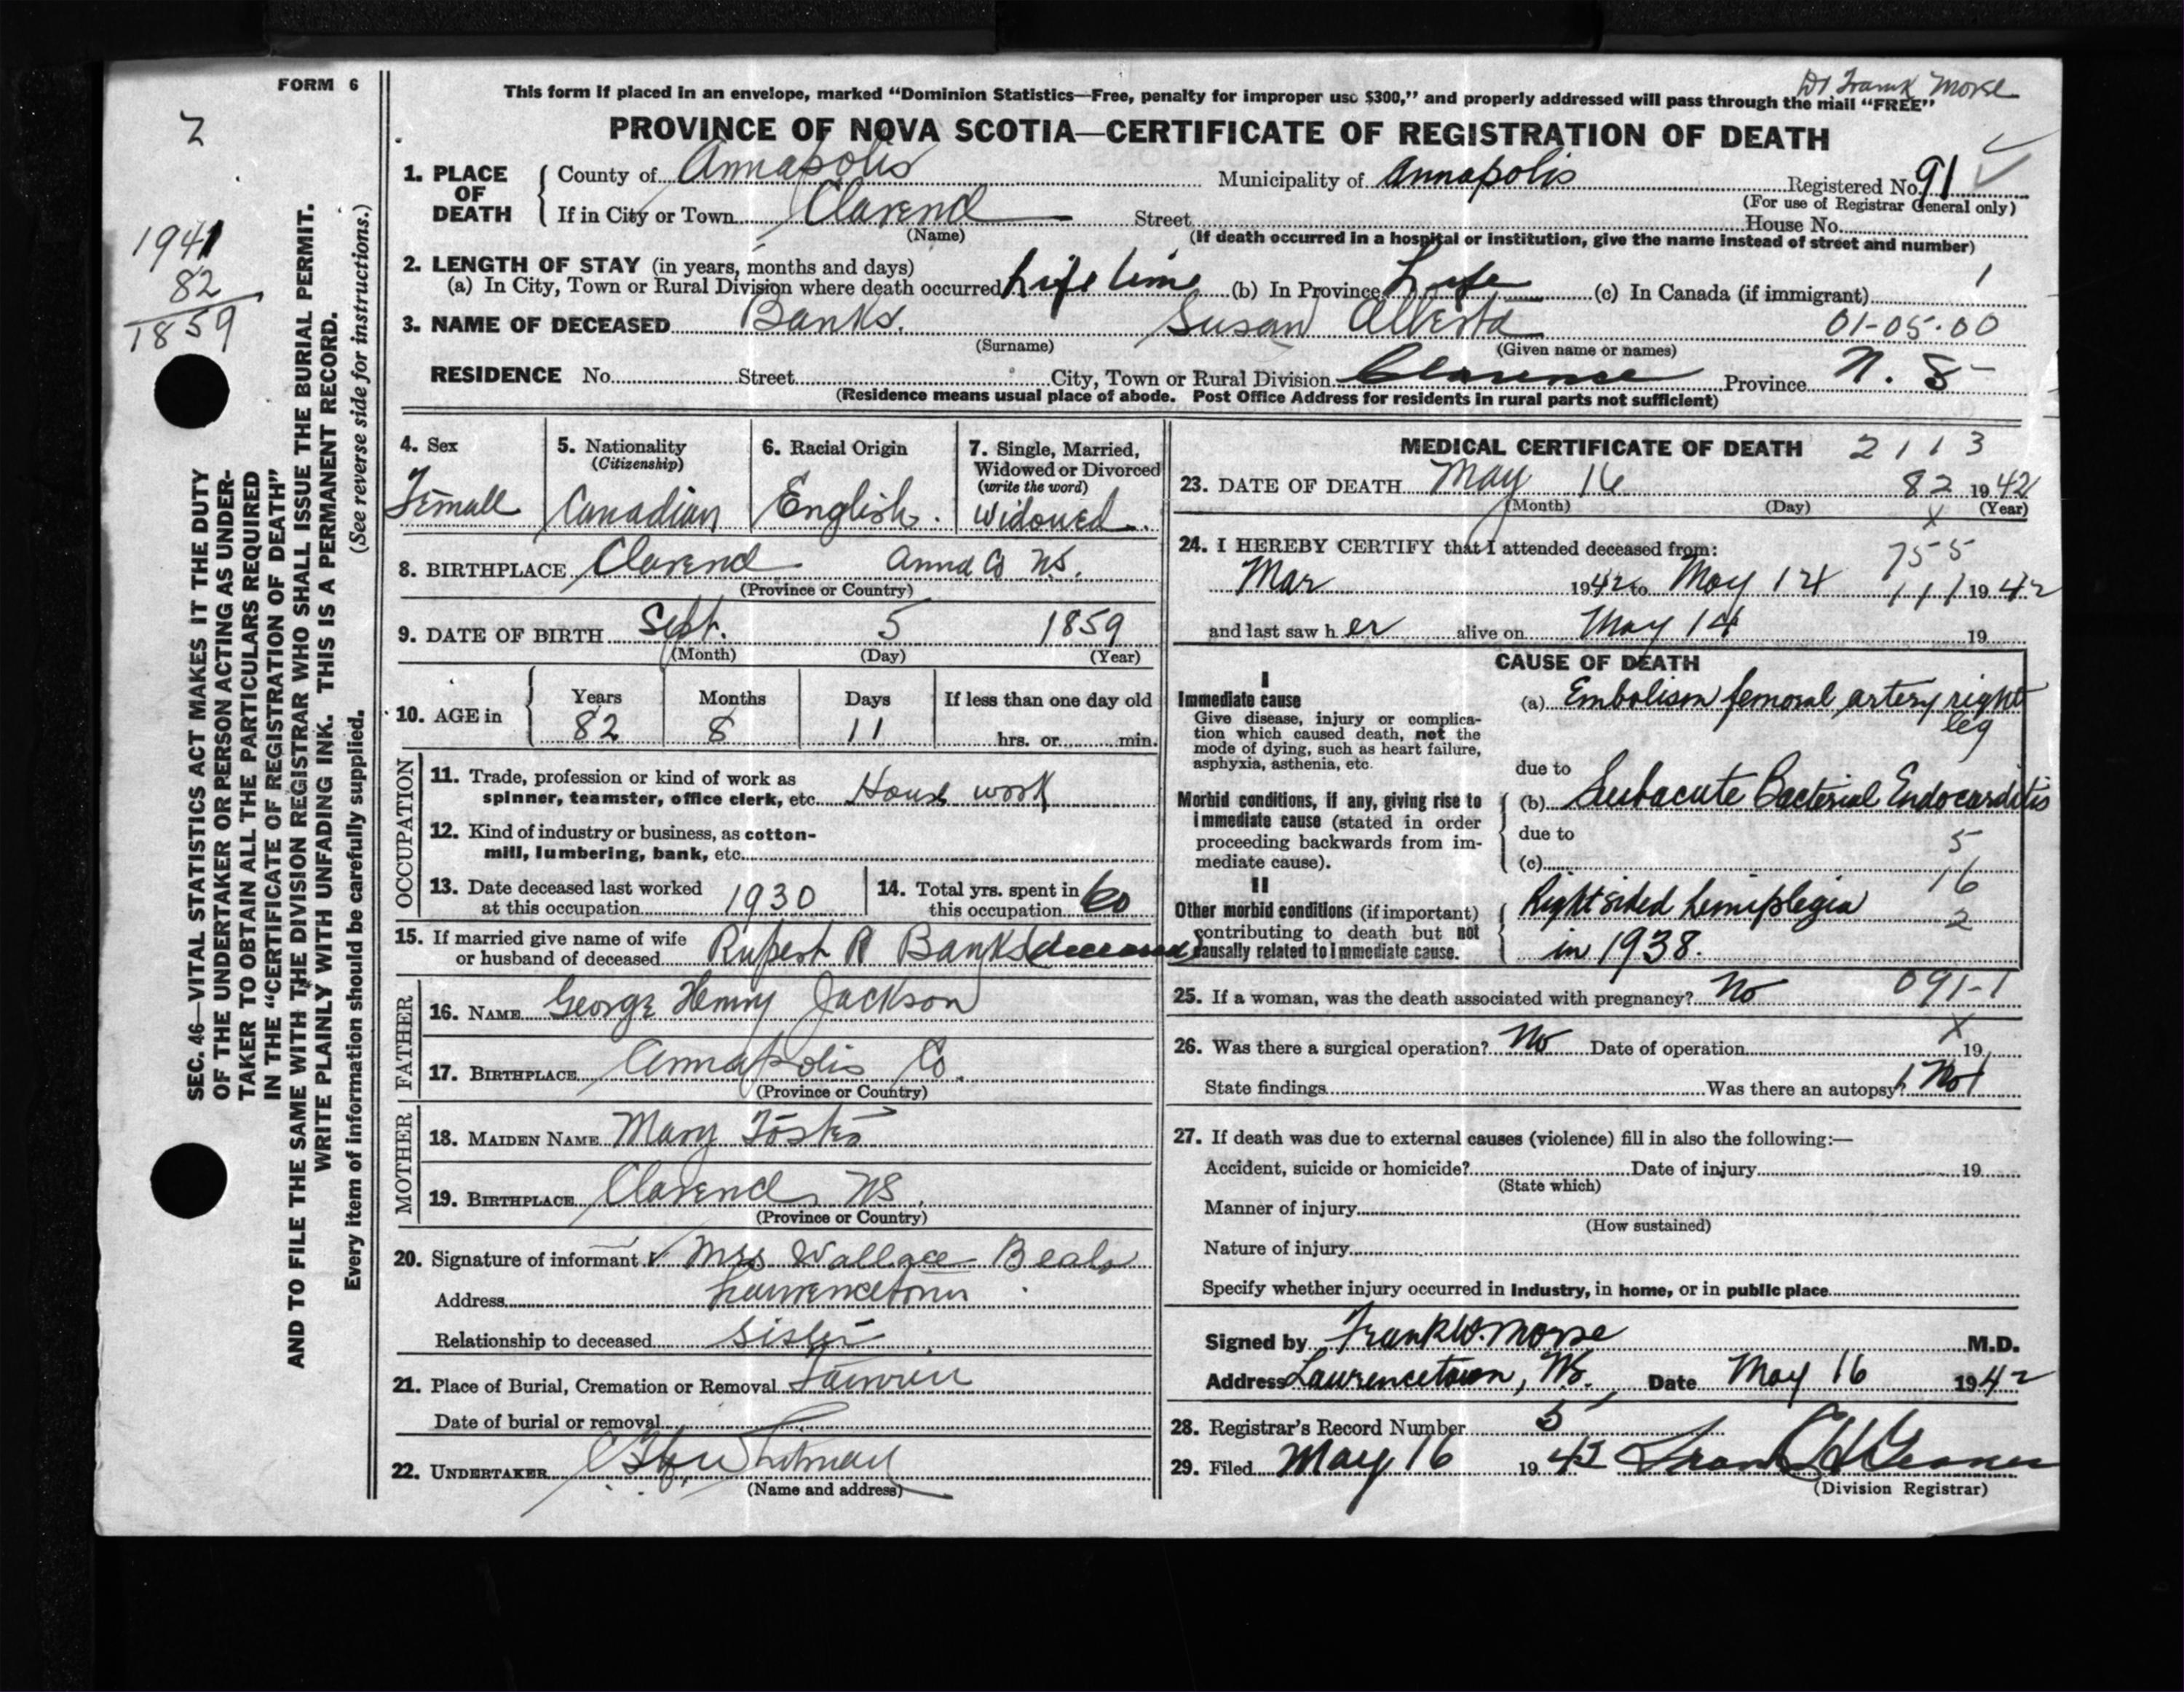 FORM 6
Dr Frank Morse
This form if placed in an envelope, marked “Dominion Statistics—Free, penalty for improper use $300,” and properly addressed will pass through the mail “FREE”
PROVINCE OF NOVA SCOTIA—CERTIFICATE OF REGISTRATION OF DEATH
2
1941
82
1859
SEC. 46—VITAL STATISTICS ACT MAKES IT THE DUTY
OF THE UNDERTAKER OR PERSON ACTING AS UNDER-
TAKER TO OBTAIN ALL THE PARTICULARS REQUIRED
IN THE “CERTIFICATE OF REGISTRATION OF DEATH”
AND TO FILE THE SAME WITH THE DIVISION REGISTRAR WHO SHALL ISSUE THE BURIAL PERMIT.
WRITE PLAINLY WITH UNFADING INK. THIS IS A PERMANENT RECORD.
Every item of information should be carefully supplied. (See reverse side for instructions.)
1. PLACE OF DEATH
County of Annapolis Municipality of Annapolis Registered No. 91
(For use of Registrar General only)
If in City or Town Clarence Street House No.
(Name) (If death occurred in a hospital or institution, give the name instead of street and number)
2. LENGTH OF STAY (in years, months and days)
(a) In City, Town or Rural Division where death occurred Life time (b) In Province Life (c) In Canada (if immigrant) 1
3. NAME OF DECEASED Banks. Susan Alberta 01-05-00
(Surname) (Given name or names)
RESIDENCE No. Street City, Town or Rural Division Clarence Province N. S
(Residence means usual place of abode. Post Office Address for residents in rural parts not sufficient)
4. Sex
Female
5. Nationality
(Citizenship)
Canadian
6. Racial Origin
English.
7. Single, Married,
Widowed or Divorced
(write the word)
Widowed.
8. BIRTHPLACE Clarence Anna Co N.S.
(Province or Country)
9. DATE OF BIRTH Sept. 5 1859
(Month) (Day) (Year)
10. AGE in Years Months Days If less than one day old
82 8 11 hrs. or min.
OCCUPATION
11. Trade, profession or kind of work as
spinner, teamster, office clerk, etc. House work
12. Kind of industry or business, as cotton-
mill, lumbering, bank, etc.
13. Date deceased last worked
at this occupation 1930
14. Total yrs. spent in
this occupation 60
15. If married give name of wife
or husband of deceased Rupert R Banks (deceased)
FATHER
16. NAME George Henry Jackson
17. BIRTHPLACE Annapolis Co.
(Province or Country)
MOTHER
18. MAIDEN NAME Mary Foster
19. BIRTHPLACE Clarence NS.
(Province or Country)
20. Signature of informant Mrs Wallace Beals
Address Lawrencetown
Relationship to deceased sister
21. Place of Burial, Cremation or Removal
Date of burial or removal
22. UNDERTAKER Whitman
(Name and address)
MEDICAL CERTIFICATE OF DEATH 2113
23. DATE OF DEATH May 16 82 1942
(Month) (Day) (Year)
x
24. I HEREBY CERTIFY that I attended deceased from:
755
Mar 1942 to May 14 111 1942
and last saw her alive on May 14 19
CAUSE OF DEATH
I
Immediate cause
Give disease, injury or complica-
tion which caused death, not the
mode of dying, such as heart failure,
asphyxia, asthenia, etc.
(a) Embolism femoral artery right
leg
due to
Morbid conditions, if any, giving rise to
immediate cause (stated in order
proceeding backwards from im-
mediate cause).
(b) Subacute Bacterial Endocarditis
due to
5
(c)
16
II
Other morbid conditions (if important)
contributing to death but not
causally related to immediate cause.
Right sided hemiplegia
2
in 1938.
25. If a woman, was the death associated with pregnancy? No 091-1
x
26. Was there a surgical operation? No Date of operation 19
State findings Was there an autopsy? No 1
27. If death was due to external causes (violence) fill in also the following:—
Accident, suicide or homicide? Date of injury 19
(State which)
Manner of injury
(How sustained)
Nature of injury
Specify whether injury occurred in industry, in home, or in public place
Signed by Frank W. Morse M.D.
Address Lawrencetown, N.S. Date May 16 1942
28. Registrar's Record Number 5
29. Filed May 16 19
(Division Registrar)